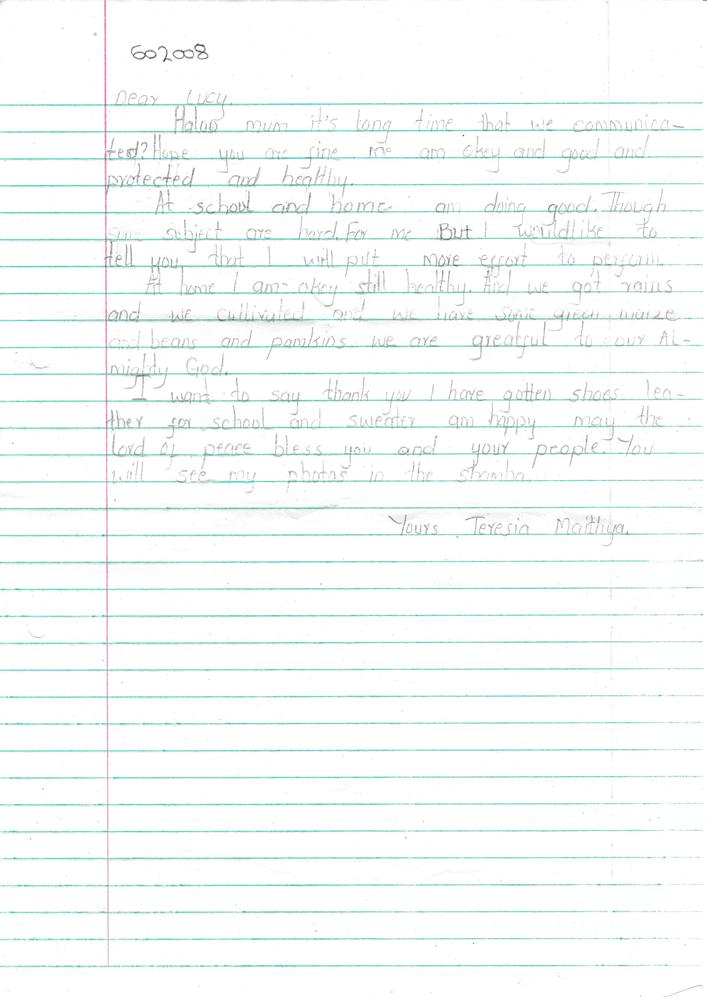 602008
Dear Lucy.
Haloo mum it's long time that we communica-
ted? Hope you are fine me am okey and good and
protected and healthy.
At school and home am doing good. Though
some subject are hard. For me But I wouldlike to
tell you that I will put more effort to perform.
At home I am okey still healthy. And we got rains
and we cultivated and we have some green maize
and beans and pamkins we are greatful to our Al-
mighty God.
I want to say thank you I have gotten shoes lea-
ther for school and sweater am happy may the
lord of peace bless you and your people. You
will see my photos in the shamba.
Yours Teresia Maithya.